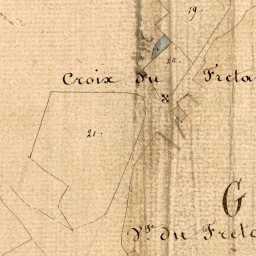 19.
20.
Croix du Freta
21.
G
du Freta